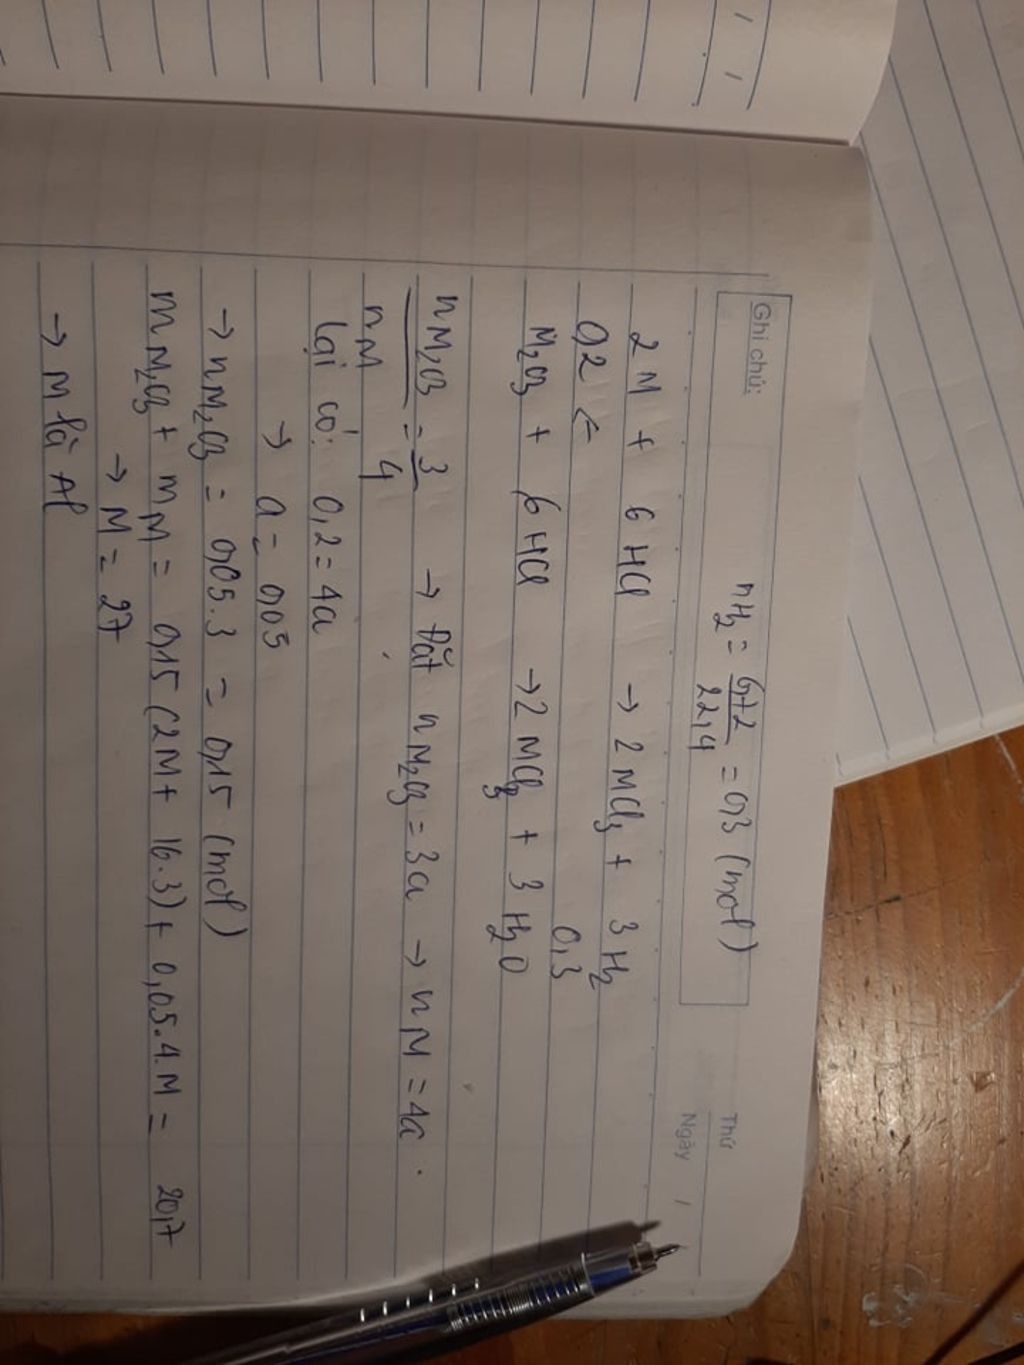 Ghi chú:
Thứ
Ngày /
nH2 = 6,72/22,4 = 0,3 (mol)
2M + 6HCl → 2MCl3 + 3H2
0,2 ← 0,3
M2O3 + 6HCl → 2MCl3 + 3H2O
nM2O3/nM = 3/4 → Đặt nM2O3 = 3a → nM = 4a.
lại có: 0,2 = 4a
→ a = 0,05
→ nM2O3 = 0,05.3 = 0,15 (mol)
mM2O3 + mM = 0,15(2M + 16.3) + 0,05.4.M = 20,7
→ M = 27
→ M là Al